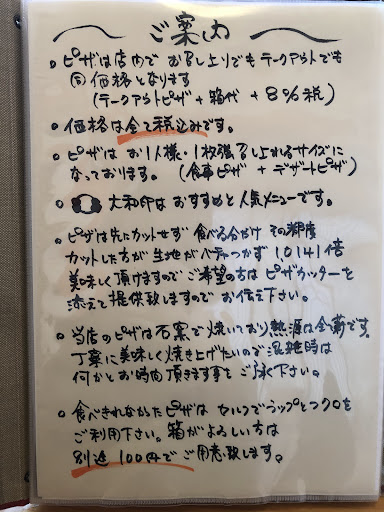 ご案内
• ピザは店内でお召し上りでもテークアウトでも
同価格となります
(テークアウトピザ + 箱代 + 8%税)
• 価格は全て税込みです。
• ピザはお1人様・1枚張召し上れるサイズに
なっております。(食事ピザ + デザートピザ)
• 大和印はおすすめと人気メニューです。
• ピザは先にカットせず 食べる分だけ その都度
カットした方が生地がバテつかず 1,0141倍
美味しく頂けますのでご希望の方は ピザカッターを
添えて提供致しますので お伝え下さい。
• 当店のピザは石窯で焼いており熱源は全て薪です。
丁寧に美味しく焼き上げたいので混雑時は
何かとお時間頂きます事をご了承下さい。
• 食べきれなかったピザは セルフでラップとフクロを
ご利用下さい。箱がよろしい方は
別途100円でご用意致します。